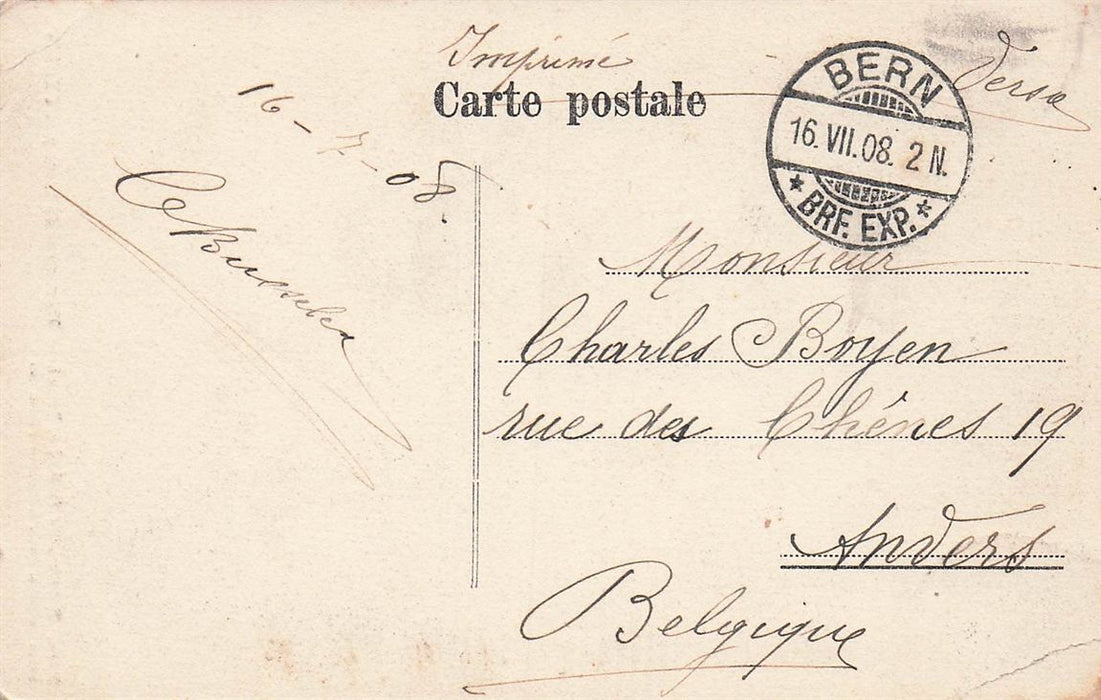 Imprimé
Carte postale
BERN
16. VII. 08. 2 N.
* BRF. EXP. *
16-7-08.
Monsieur
Charles Boyen
rue des Chênes 19
Anvers
Belgique